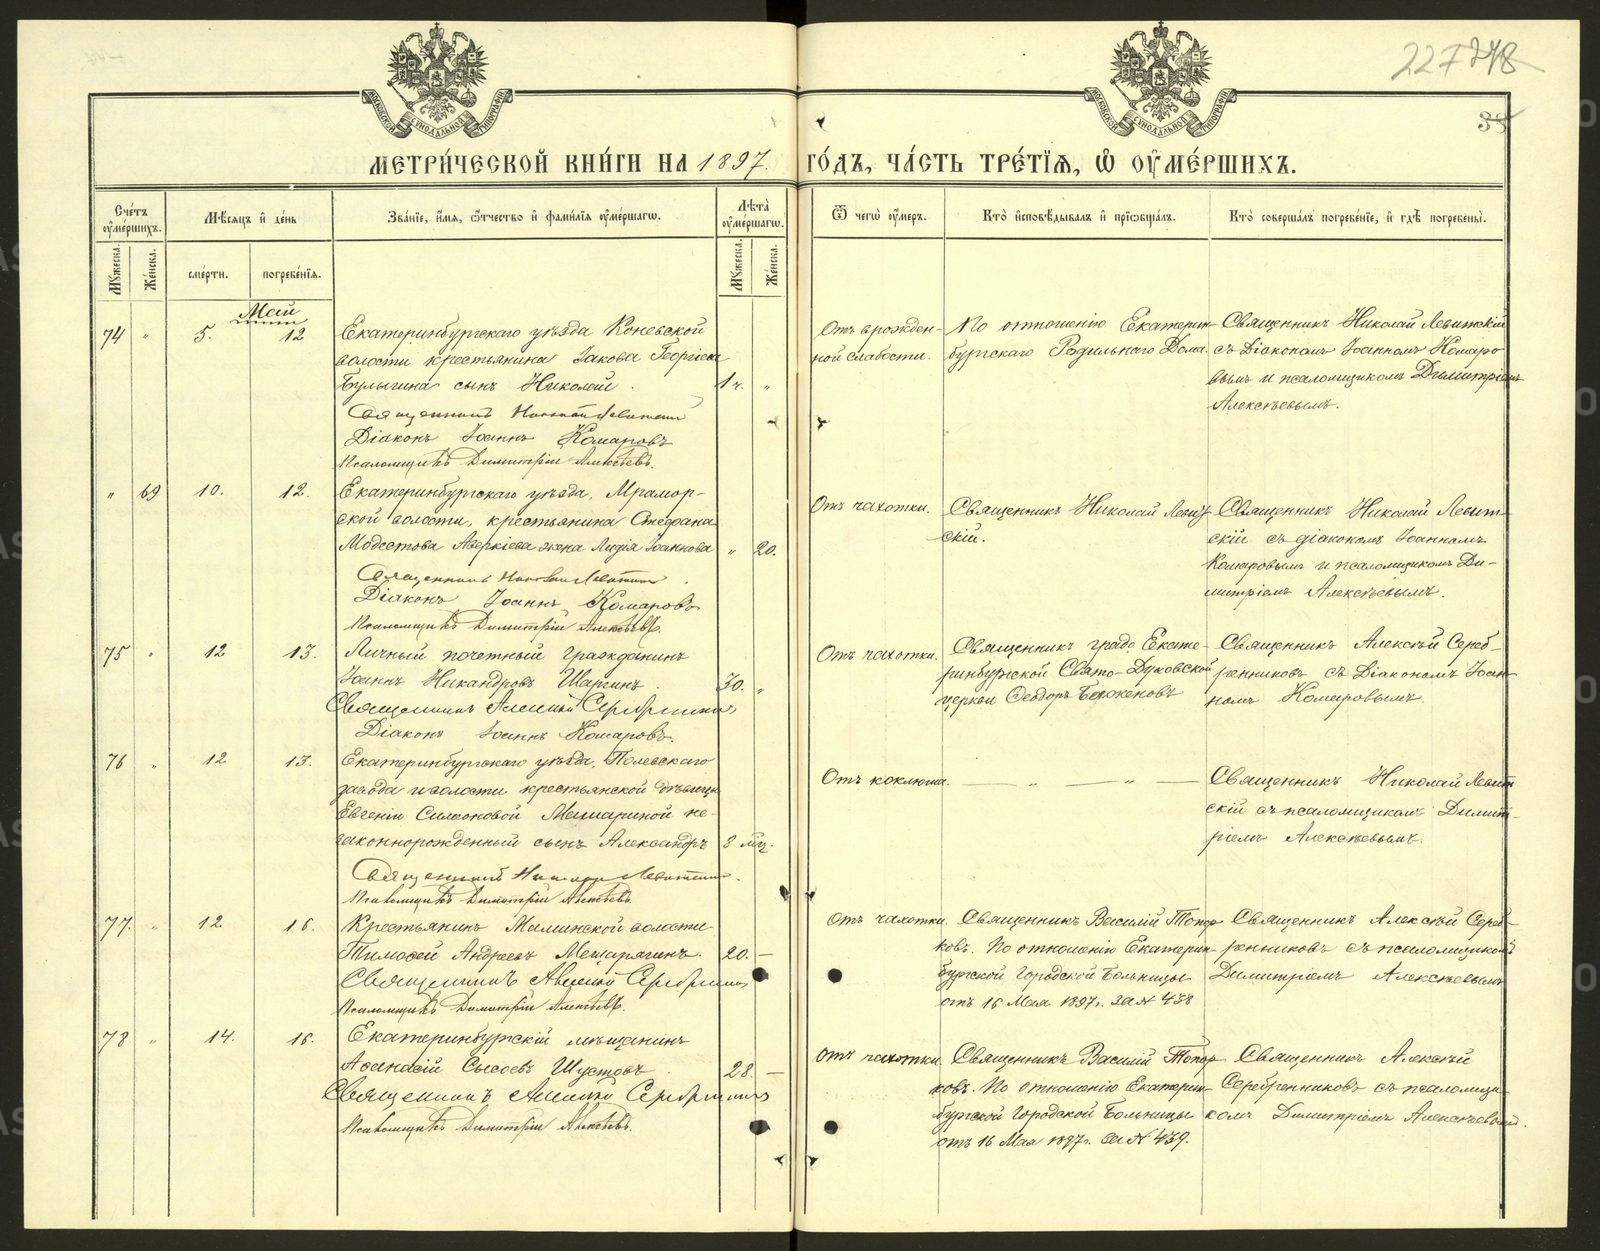 227 248
35
МОСКОВСКОЙ СѴНОДАЛЬНОЙ ТИПОГРАФІИ
МОСКОВСКОЙ СѴНОДАЛЬНОЙ ТИПОГРАФІИ
МЕТРИ́ЧЕСКОЙ КНИ́ГИ НА 1897. ГО́ДЪ, ЧА́СТЬ ТРЕ́ТЇѦ, Ѡ҆ ОУ҆МЕ́РШИХЪ.
Сче́тъ оу҆ме́ршихъ.
Мѣ́сяцъ и҆ де́нь
Зва́нїе, и҆́мя, ѻ҆́тчество и҆ фами́лїя оу҆ме́ршагѡ.
Лѣ́та оу҆ме́ршагѡ.
Ѿ чегѡ̀ оу҆́меръ.
Кто̀ и҆сповѣ́дывалъ и҆ прїѡбща́лъ.
Кто̀ соверша́лъ погребе́нїе, и҆ гдѣ̀ погребены̀.
Мꙋ́жеска.
Же́нска.
сме́рти.
погребе́нїя.
Мꙋ́жеска.
Же́нска.
Май
74 " 5. 12 Екатеринбургскаго уѣзда Коневской
волости крестьянина Іакова Георгіева
Булыгина сынъ Николай. 1 ч. "
Священникъ Николай Левитскій
Діаконъ Іоаннъ Комаровъ
Псаломщикъ Димитрій Алексѣевъ.
Отъ врожден-
ной слабости.
По отношенію Екатерин-
бургскаго Родильнаго Дома.
Священникъ Николай Левитскій
съ Діакономъ Іоанномъ Комаро
вымъ и псаломщикомъ Димитріемъ
Алексѣевымъ.
" 69 10. 12. Екатеринбургскаго уѣзда, Мрамор-
ской волости, крестьянина Стефана
Модестова Аверкіева жена Лидія Іоаннова " 20.
Священникъ Николай Левитскій
Діаконъ Іоаннъ Комаровъ
Псаломщикъ Димитрій Алексѣевъ.
Отъ чахотки.
Священникъ Николай Левит
скій.
Священникъ Николай Левит-
скій съ діакономъ Іоанномъ
Комаровымъ и псаломщикомъ Ди-
митріемъ Алексѣевымъ.
75 " 12 13. Личный почетный гражданинъ
Іоаннъ Никандровъ Шаргинъ. 30. "
Священникъ Алексій Серебренниковъ
Діаконъ Іоаннъ Комаровъ.
Отъ чахотки.
Священникъ града Екате-
ринбургской Свято-Духовской
церкви Ѳеодоръ
Священникъ Алексѣй Сереб-
ренниковъ съ Діакономъ Іоан-
номъ Комаровымъ.
76 " 12 13. Екатеринбургскаго уѣзда, Полевскаго
завода и волости крестьянской дѣвицы
Евгеніи Симоновой Машариной не-
законнорожденный сынъ Александръ 8 мц.
Священникъ Николай Левитскій.
Псаломщикъ Димитрій Алексѣевъ.
Отъ коклюша.
— " — — " —
Священникъ Николай Левит
скій съ псаломщикомъ Димит-
ріемъ Алексѣевымъ.
77. " 12. 16. Крестьянинъ Маминской волости
Тимоѳей Андреевъ Мещарягинъ. 20. —
Священникъ Алексій Серебренниковъ
Псаломщикъ Димитрій Алексѣевъ.
Отъ чахотки.
Священникъ Василій Топор
ковъ. По отношенію Екатерин-
бургской Городской Больницы
отъ 16 Мая 1897 г. за № 438
Священникъ Алексѣй Сереб-
ренниковъ съ псаломщикомъ
Димитріемъ Алексѣевымъ
78 " 14. 16. Екатеринбургскій мѣщанинъ
Аѳанасій Сысоевъ Шустовъ. 28. —
Священникъ Алексій Серебренниковъ
Псаломщикъ Димитрій Алексѣевъ.
Отъ чахотки.
Священникъ Василій Топор
ковъ. По отношенію Екатерин-
бургской Городской Больницы
отъ 16 Мая 1897 г. за № 439.
Священникъ Алексѣй
Серебренниковъ съ псаломщи-
комъ Димитріемъ Алексѣевымъ.